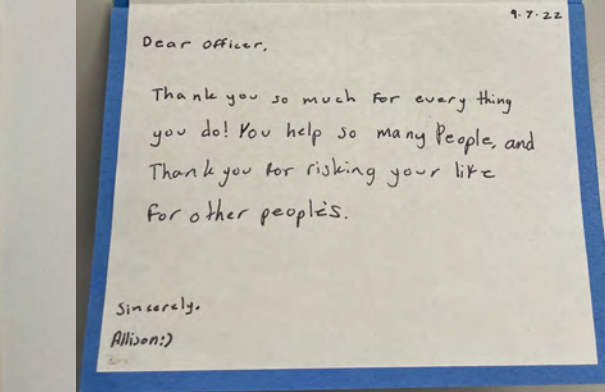 9.7.22
Dear officer,
Thank you so much for every thing
you do! You help so many People, and
Thank you for risking your life
for other people's.
Sincerely,
Allison:)